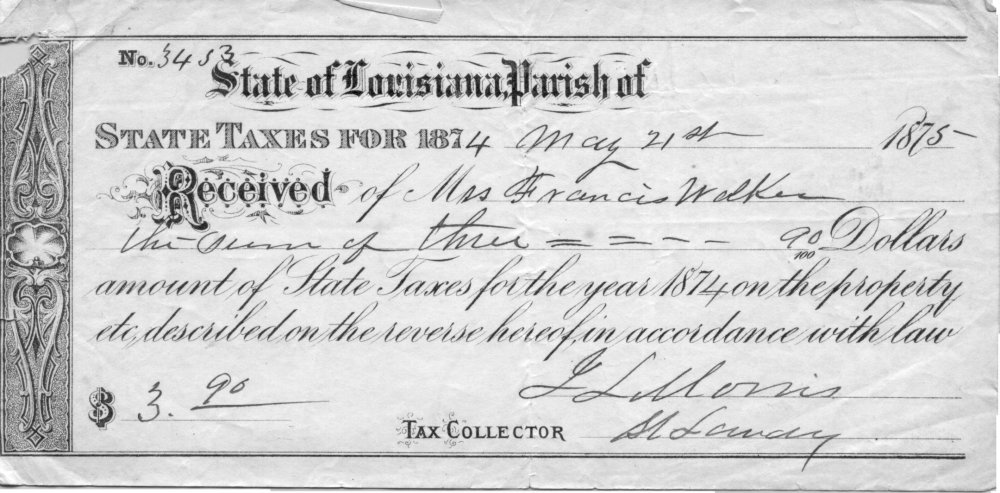 No. 3453
State of Louisiana, Parish of
STATE TAXES FOR 1874 May 21st 1875
Received of Mrs Francis Walker
the sum of three = = - - 90/100 Dollars
amount of State Taxes for the year 1874 on the property
etc, described on the reverse hereof, in accordance with law
$ 3. 90 J L Morris
TAX COLLECTOR St Landry